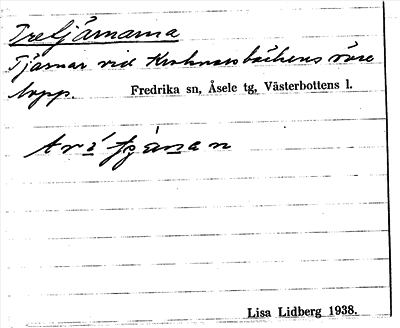 Tretjärnarna
Tjärnar vid Krokmossbäckens övre
lopp. Fredrika sn, Åsele tg, Västerbottens l.
Lisa Lidberg 1938.